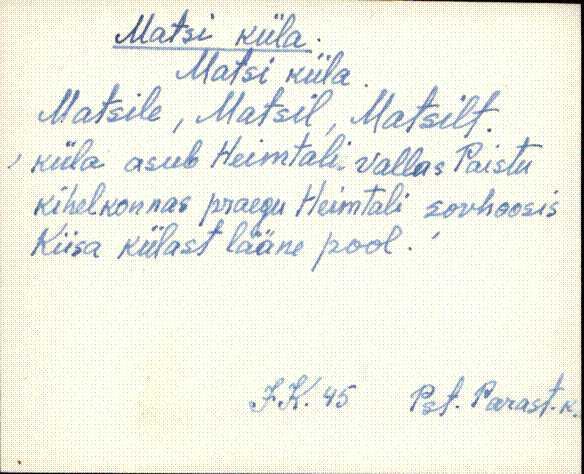 Matsi küla.
Matsi küla.
Matsile, Matsil, Matsilt.
küla asub Heimtali vallas Paistu
kihelkonnas praegu Heimtali sovhoosis
Kiisa külast lääne pool.
J.K. 45 Pst. Parast. k.